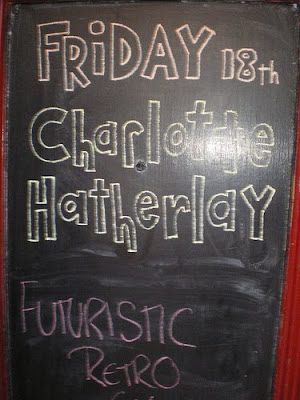 FRiDAY 18th
Charlotte
Hatherlay
FUTURISTIC
RETRO